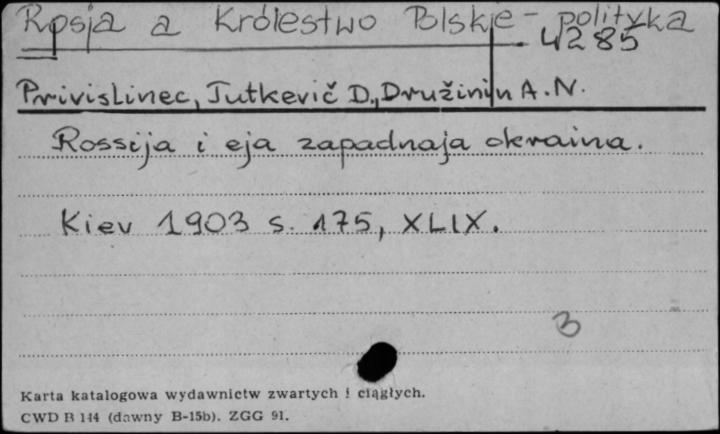 Rosja a Królestwo Polskie - polityka
4285
Privislinec, Tutkevič D., Družinin A.N.
Rossija i eja zapadnaja okraina.
Kiev 1903 s. 175, XLIX.
3
Karta katalogowa wydawnictw zwartych i ciągłych.
CWD B 144 (dawny B-15b). ZGG 91.